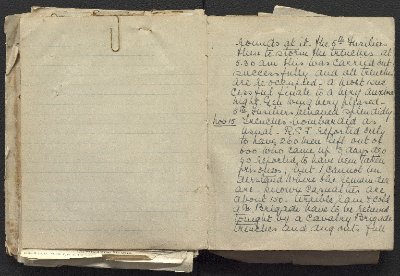 rounds at it. the 5th Fusiliers
then to storm the trenches at
5.30 am this was carried out
successfully and all trenches
are reoccupied - a most suc
cessful finale to a very anxious
night. Gen Wing very pleased -
5th Fusiliers behaved splendidly
Nov 15 Trenches bombarded as
usual - R.S.F. reported only
to have 260 men left out of
600 who came up 3 days ago
90 reported to have been taken
prisoners, but I cannot un
derstand where the remainder
are. Known casualties are
about 150. Terrible rain & cold
9th Brigade have to be relieved
tonight by a Cavalry Brigade
trenches and dug outs full